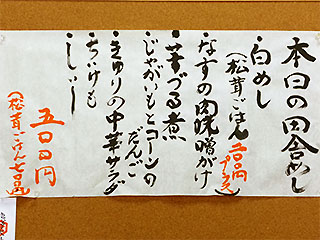 本日の田舎めし
白めし
(松茸ごはん二〇〇円プラス)
なすの肉味噌がけ
芋づる煮
じゃがいもとコーンの
だんご
きゅりの中華サラダ
ちいけも
しぃー
五〇〇円
(松茸ごはん七〇〇円)